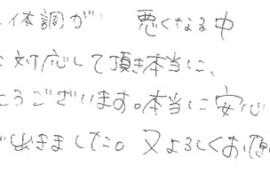 体調が 悪くなる中
対応して頂き本当に、
うございます。本当に安心
出きました。又よろしくお願